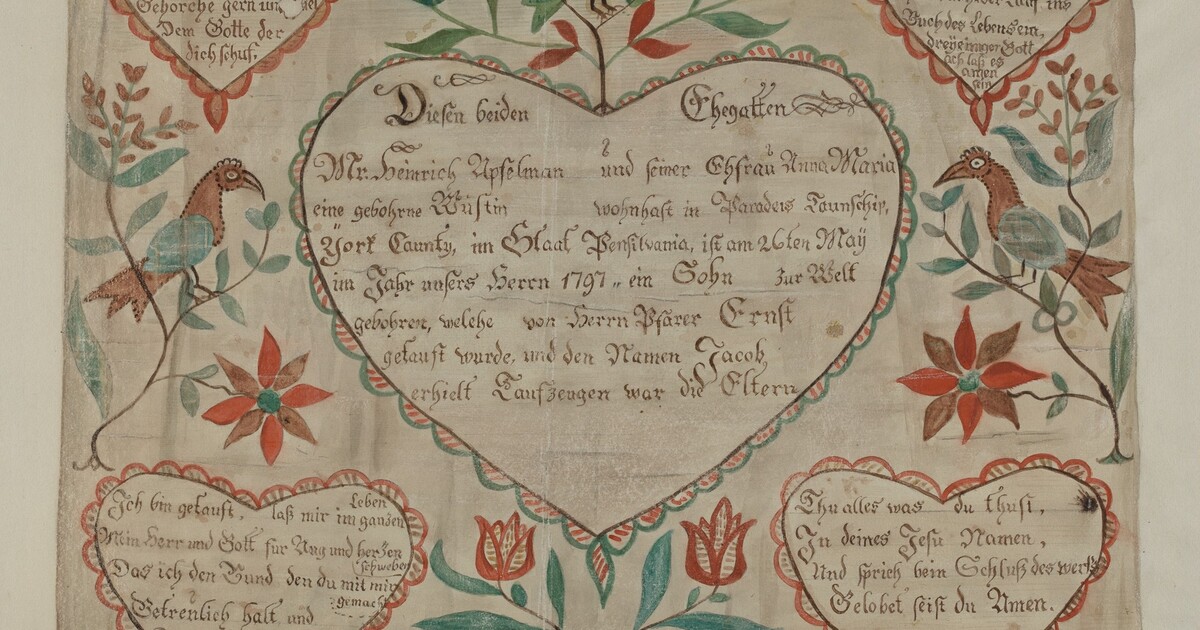 Gehorche gern und
Dem Gotte der
dich schuf.
Buch des Lebens ein,
dreyeiniger Gott
ach laß es
amen
sein
Diesen beiden Ehegatten
Mr. Heinrich Apfelman und seiner Ehfrau Anna Maria
eine gebohrne Wüstin wohnhaft in Paradeis Taunschip,
York Caunty, im Staat Pensilvania, ist am 26ten May
im Jahr unsers Herrn 1797 ein Sohn zur Welt
gebohren, welche von Herrn Pfärer Ernst
getauft wurde, und den Namen Jacob
erhielt Taufzeugen war die Eltern
Ich bin getauft, laß mir im ganzen Leben
Min Herr und Gott für Aug und herzen schweben
Das ich den Bund den du mit mir gemacht
Getreulich halt und
Thu alles was du thust,
In deines Jesu Namen,
Und sprich bein Schluß des werks
Gelobet seist du Amen.